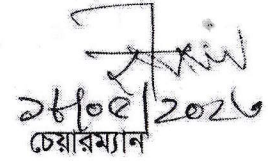 ১৮/০৫/২০২৬
চেয়ারম্যান